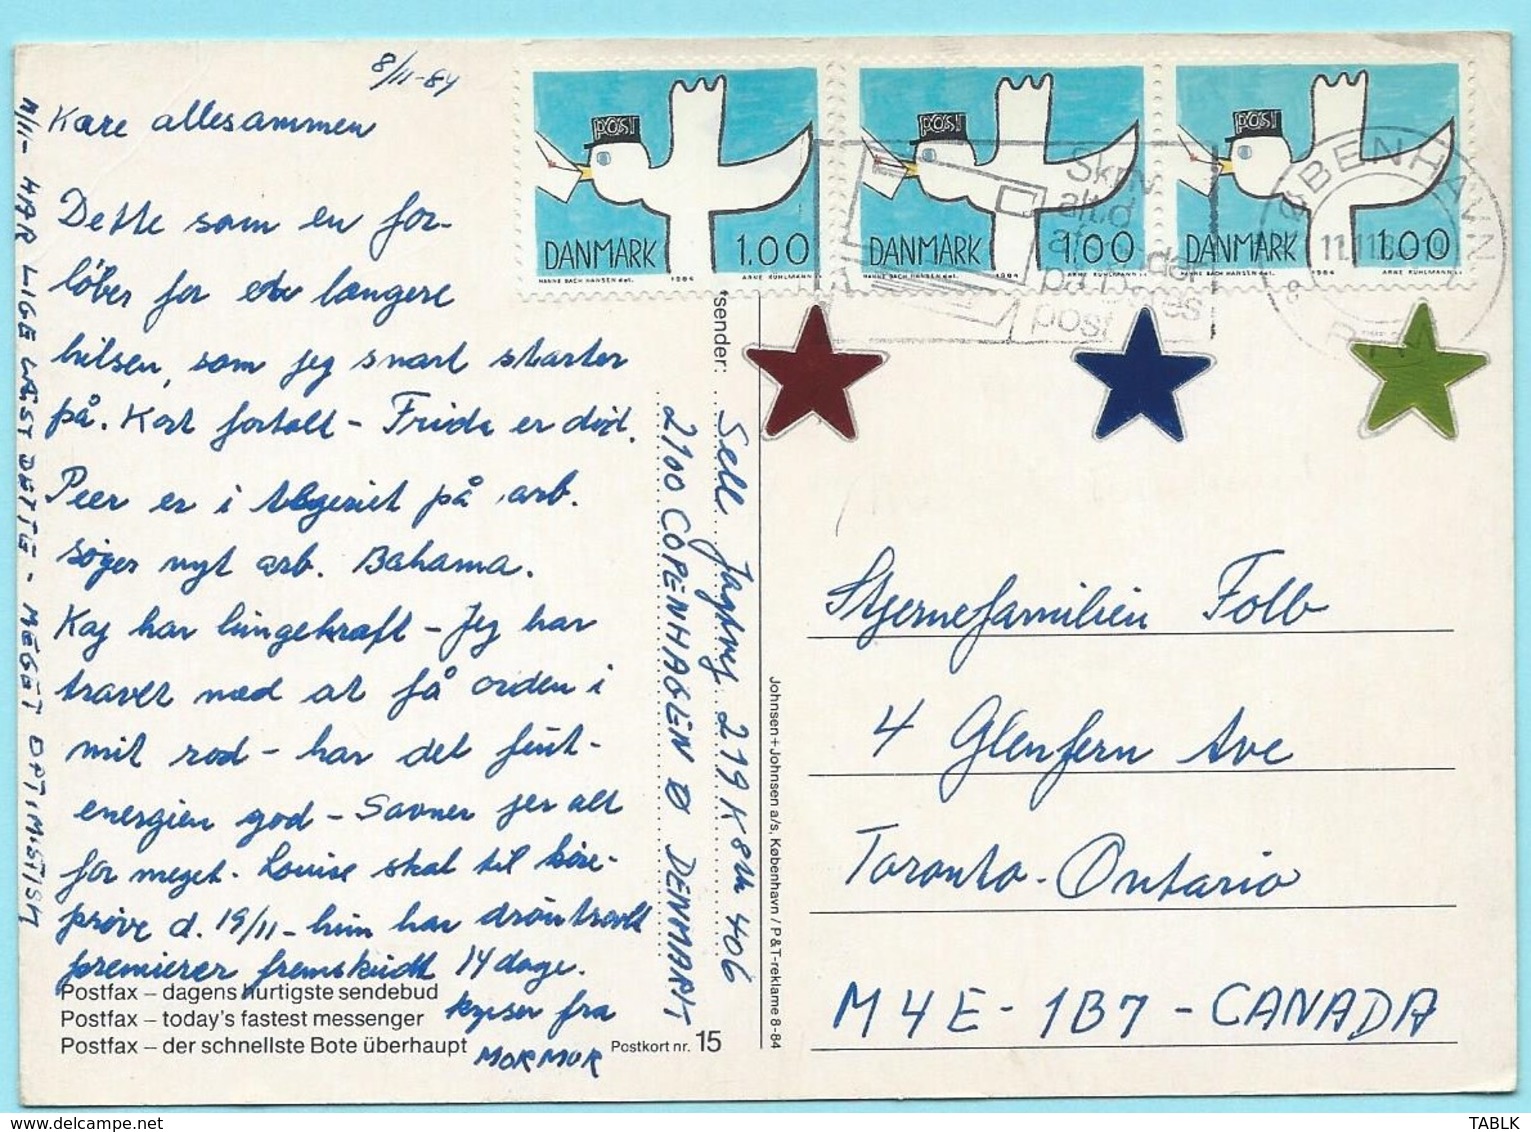 8/11-84
Kære allesammen
Dette som en for-
løber for længere
hilsen, som jeg snart starter
på. Kort fortalt - Frida er død.
Peer er i på arb.
søger nyt arb. Bahama.
Kaj har lungekræft - Jeg har
travlt med at få orden i
mit rod - har det fint -
energien god - Savner jer alt
for meget. Louise skal til køre-
prøve d. 19/11 - hun har drøntravlt
premierer fremskudt 14 dage.
kys fra
MORMOR
11/11- HAR LIGE LÆST DETTE - MEGET OPTIMISTISK
Postfax – dagens hurtigste sendebud
Postfax – today's fastest messenger
Postfax – der schnellste Bote überhaupt
Postkort nr. 15
tsender:
219 K 406
2100 COPENHAGEN Ø DENMARK
Johnsen+Johnsen a/s, København / P&T-reklame 8-84
POST
DANMARK 1.00
HANNE BACH HANSEN del. 1984 ARNE KÜHLMANN sc.
POST
DANMARK 1.00
HANNE BACH HANSEN del. 1984 ARNE KÜHLMANN
POST
DANMARK 1.00
HANNE BACH HANSEN del. 1984 ARNE KÜHLMANN sc.
Skriv
altid
på Deres
post
KØBENHAVN
Stjernefamilien Folb
4 Glenfern Ave
Toronto - Ontario
M4E - 1B7 - CANADA
TABLK